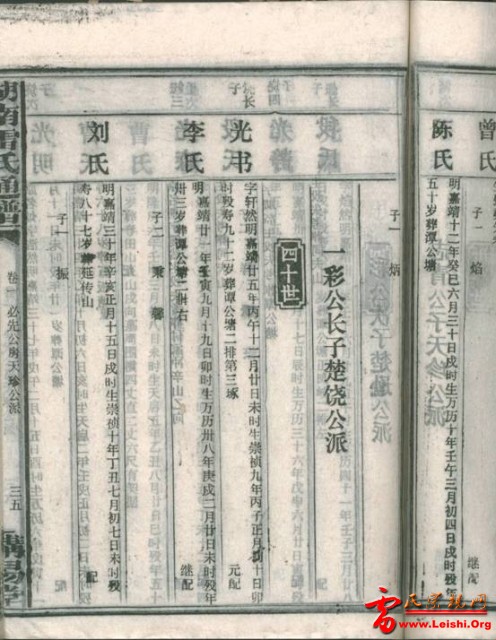 曾氏
子一 焰
陈氏
明嘉靖十二年癸巳六月三十日戌时生万历十年壬午三月初四日戌时殁年
五十岁葬谭公塘
子一 焰
一彩公长子楚饶公派
四十世
长子 光书
字轩然明嘉靖廿五年丙午十二月廿日未时生崇祯九年丙子正月初十日卯
时殁寿九十二岁葬谭公塘二排第三琢
元配
李氏
明嘉靖廿一年壬寅九月十九日卯时生万历卅八年庚戌二月廿日戌时殁年
卅三岁葬谭公塘二冊右
继配
子二 秉 馨
刘氏
明嘉靖三十年辛亥正月十五日戌时生崇祯十年丁丑七月初七日未时殁
寿八十七岁葬延传山
配
子一 振
湖南雷氏通谱
卷一 必先公房天珍公派
三五
雷氏宗亲网
www.Leishi.Org